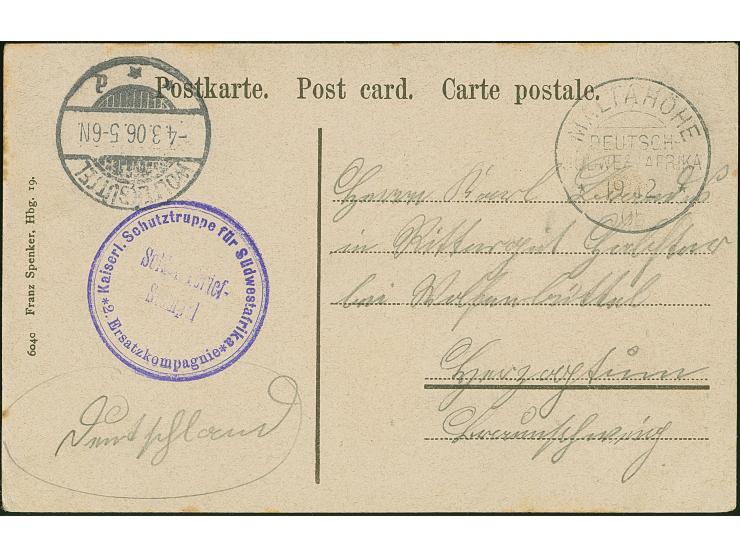 Postkarte. Post card. Carte postale.
-4.3.06.5-6N.
MALTAHÖHE
DEUTSCH-
SÜDWESTAFRIKA
19/12
Herrn Karl
in Rittergut
bei Wolfenbüttel
Herzogtum
Braunschweig
* Kaiserl. Schutztruppe für Südwestafrika *
2. Ersatzkompagnie
Soldatenbrief-
Stempel
Deutschland
6040 Franz Spenker, Hbg. 19.